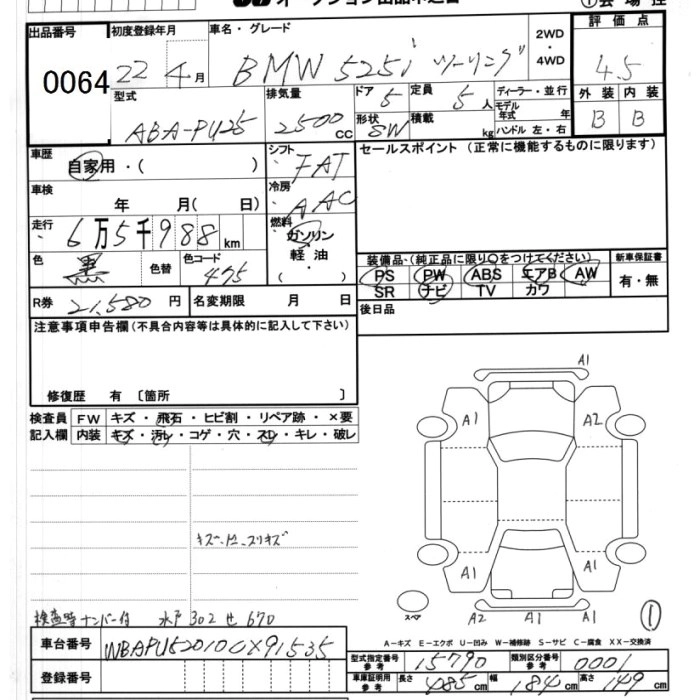 オークション出品申込書
① 会 場 控
出品番号 0064
初度登録年月 22 4月
車名・グレード BMW 525i ツーリング
2WD・4WD
評価点 4.5
型式 ABA-PU25
排気量 2500 CC
ドア 5
定員 5人
形状 SW
積載 kg
ディーラー・並行
モデル年式 年
ハンドル 左・右
外装 内装
B B
車歴 自家用・( )
シフト FAT
セールスポイント (正常に機能するものに限ります)
車検 年 月( 日)
冷房 AAC
走行 6万5千988 km
燃料 ガソリン・軽油・( )
色 黒 色替 色コード 475
装備品・(純正品に限り○をつけてください) 新車保証書
PS PW ABS エアB AW
SR ナビ TV カワ
有・無
R券 21,580 円 名変期限 月 日
後日品
注意事項申告欄(不具合内容等は具体的に記入して下さい)
修復歴 有 〔箇所 〕
検査員記入欄
FW キズ・飛石・ヒビ割・リペア跡・×要
内装 キズ・汚レ・コゲ・穴・スレ・キレ・破レ
A1
A1 A2
A1 A1
スペア A2 A1 A1
①
検査時ナンバー付 水戸302 せ 670
A-キズ E-エクボ U-凹み W-補修跡 S-サビ C-腐食 XX-交換済
車台番号 WBAPU52010CX91535
型式指定番号 参考 15790 類別区分番号 参考 0001
登録番号
車庫証明用 参考 長さ 485cm 幅 184cm 高さ 149cm